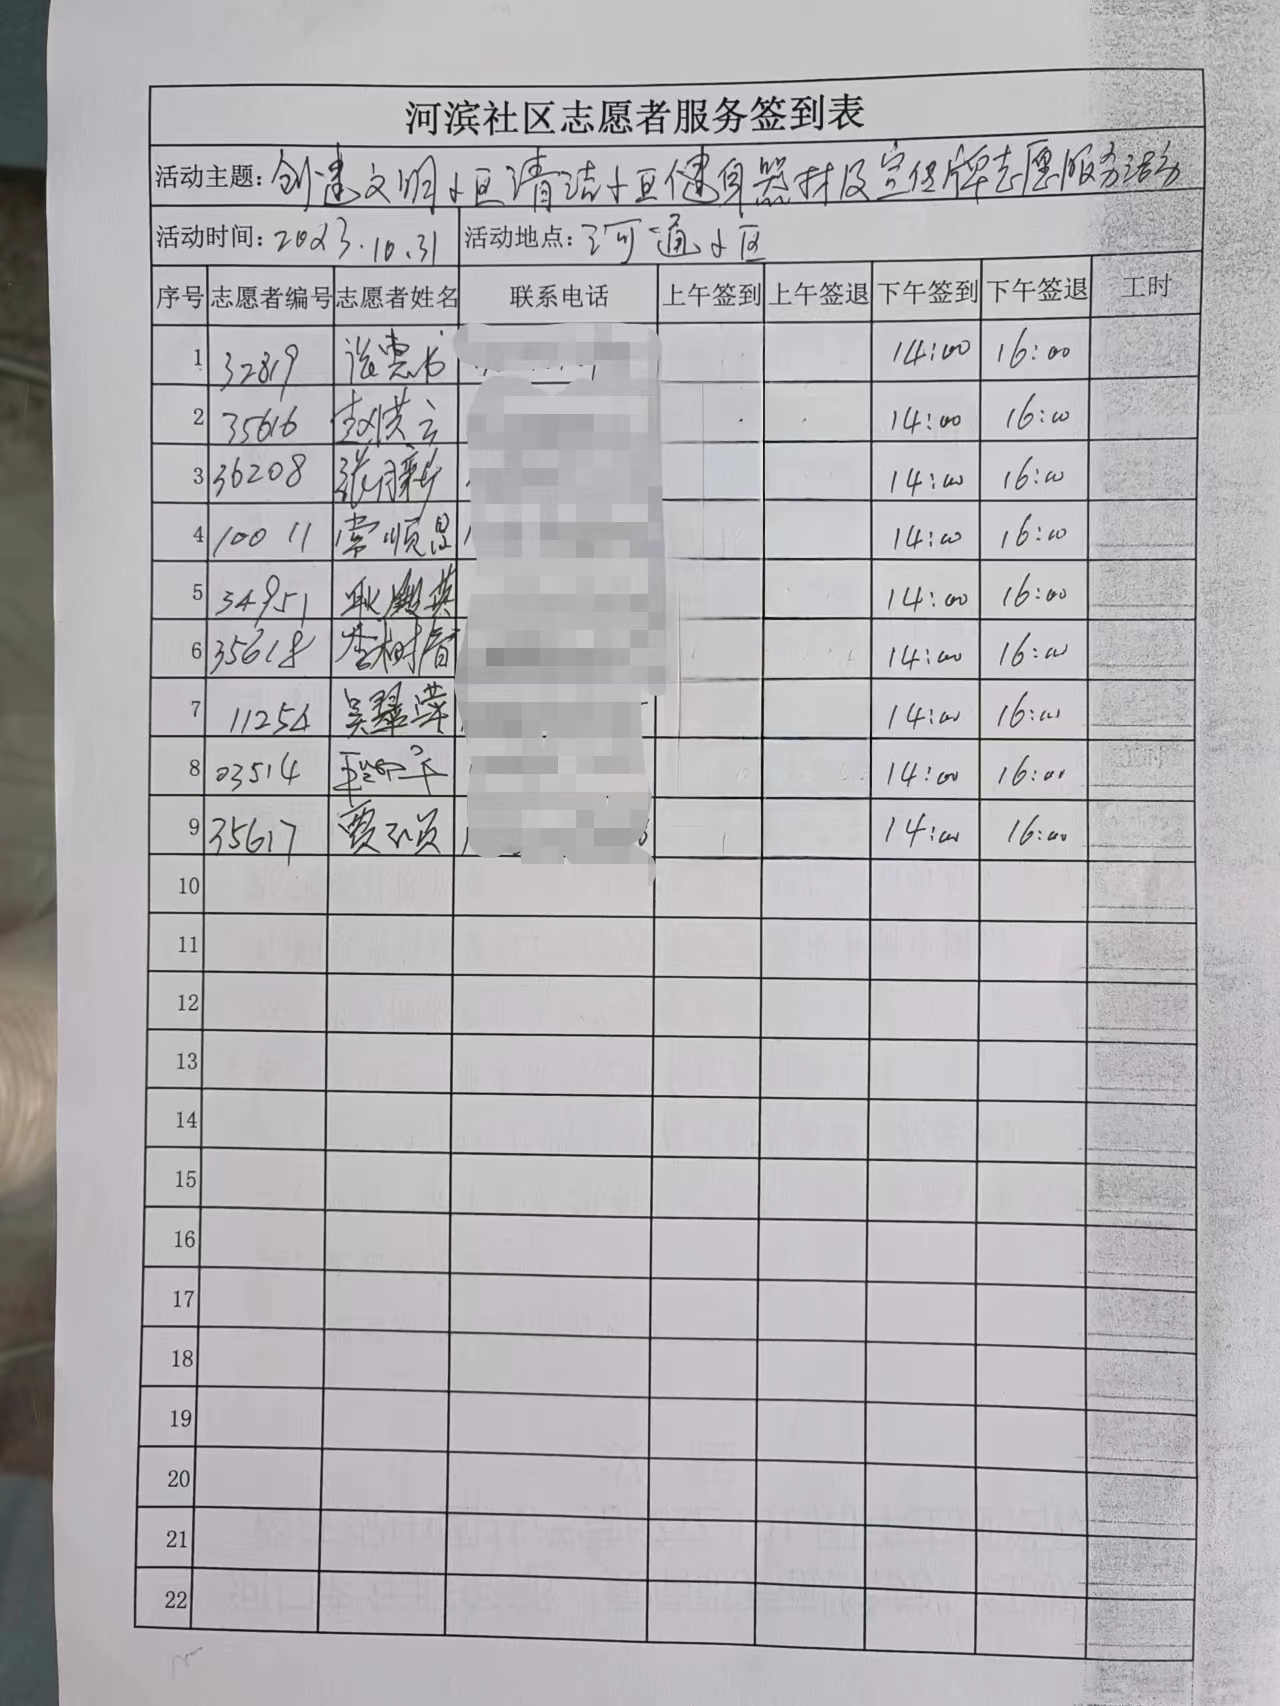 河滨社区志愿者服务签到表
活动主题：创建文明小区清洁小区健身器材及宣传牌志愿服务活动
活动时间：2023.10.31 活动地点：河通小区
序号 志愿者编号 志愿者姓名 联系电话 上午签到 上午签退 下午签到 下午签退 工时
1 32819 14:00 16:00
2 35616 赵洪云 14:00 16:00
3 36208 14:00 16:00
4 10011 常顺昌 14:00 16:00
5 34951 14:00 16:00
6 35618 李树青 14:00 16:00
7 11254 吴翠萍 14:00 16:00
8 03514 14:00 16:00
9 35617 14:00 16:00
10
11
12
13
14
15
16
17
18
19
20
21
22